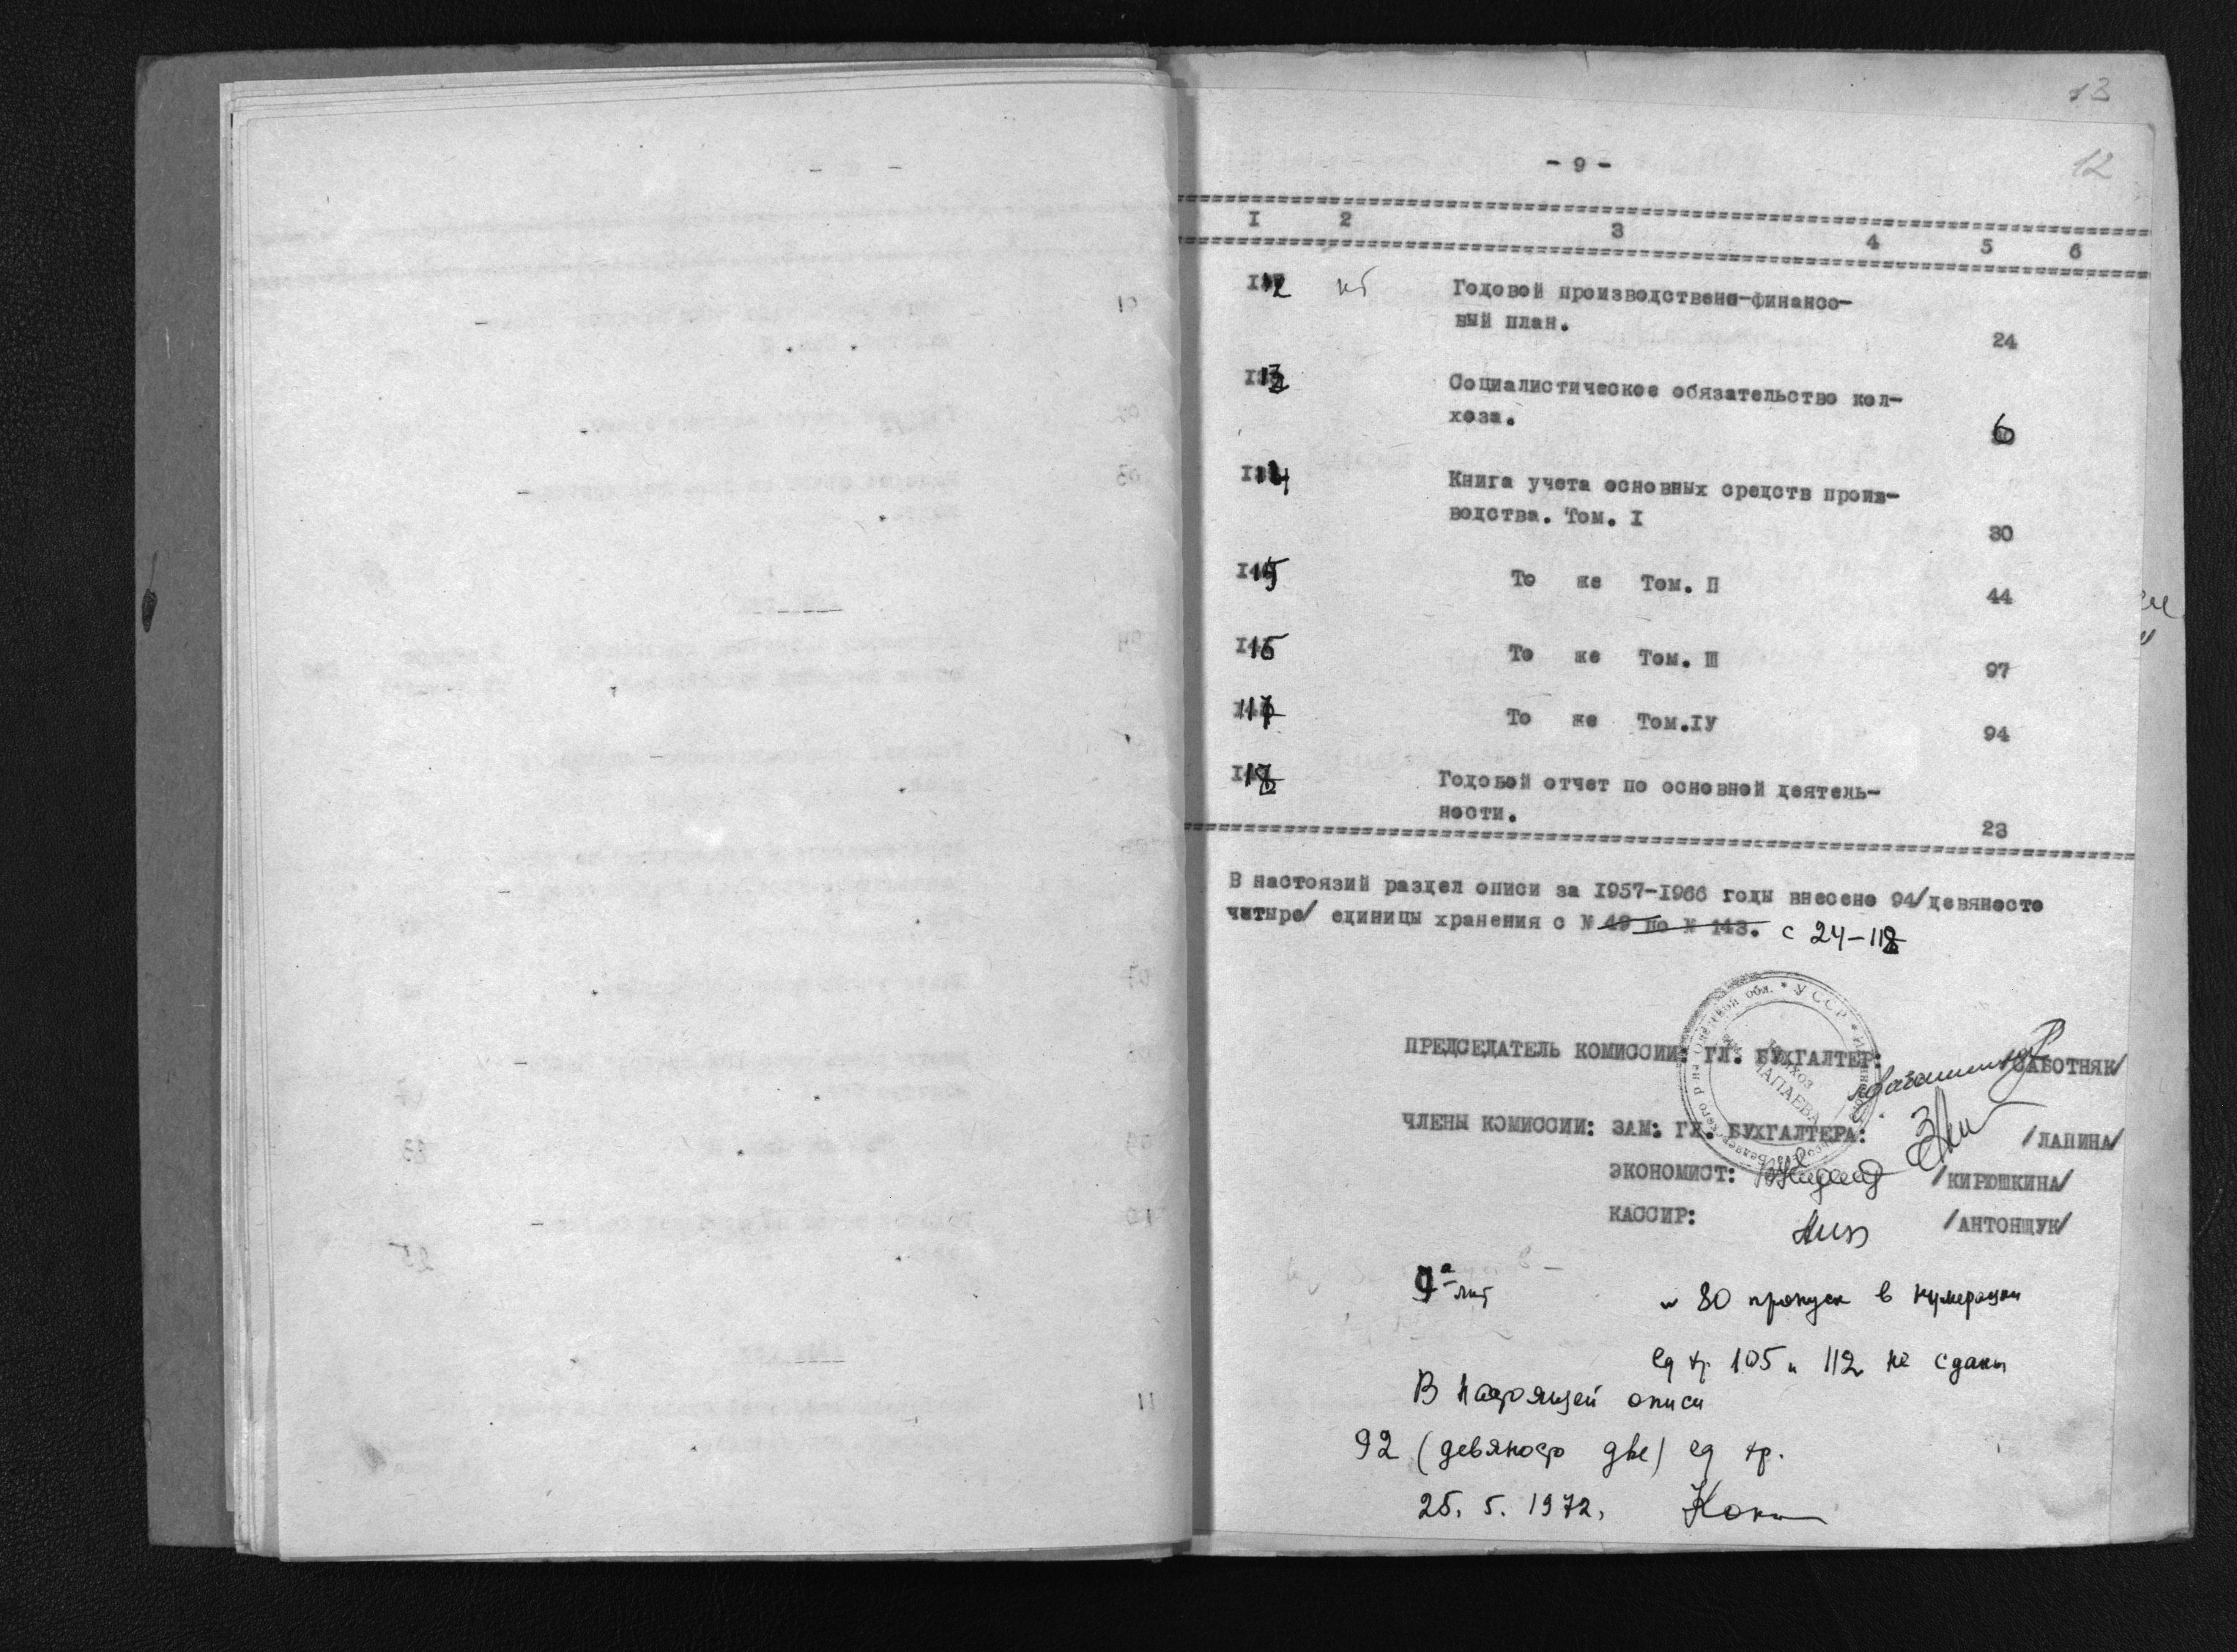 13
12
- 9 -
I 2 3 4 5 6
112 нб Годовой производствено-финансо-
вый план. 24
113 Социалистическое обязательство кол-
хоза. 6
114 Книга учета основных средств произ-
водства. Том. I 30
115 То же Том. П 44
116 То же Том. Ш 97
117 То же Том.IУ 94
118 Годовой отчет по основной деятель-
ности. 23
В настоязий раздел описи за 1957-1966 годы внесено 94/девяносто
четыре/ единицы хранения с № 49 по № 143. с 24-118
ПРЕДСЕДАТЕЛЬ КОМИССИИ: ГЛ. БУХГАЛТЕР: САБОТНЯК/
ЧЛЕНЫ КОМИССИИ: ЗАМ: ГЛ. БУХГАЛТЕРА: /ЛАПИНА/
ЭКОНОМИСТ: /КИРЮШКИНА/
КАССИР: /АНТОНЩУК/
УССР
ЧАПАЕВА
80 пропуск в нумерации
ед хр. 105 и 112 не сданы
В настоящей описи
92 (девяносто две) ед хр.
25. 5. 1972.